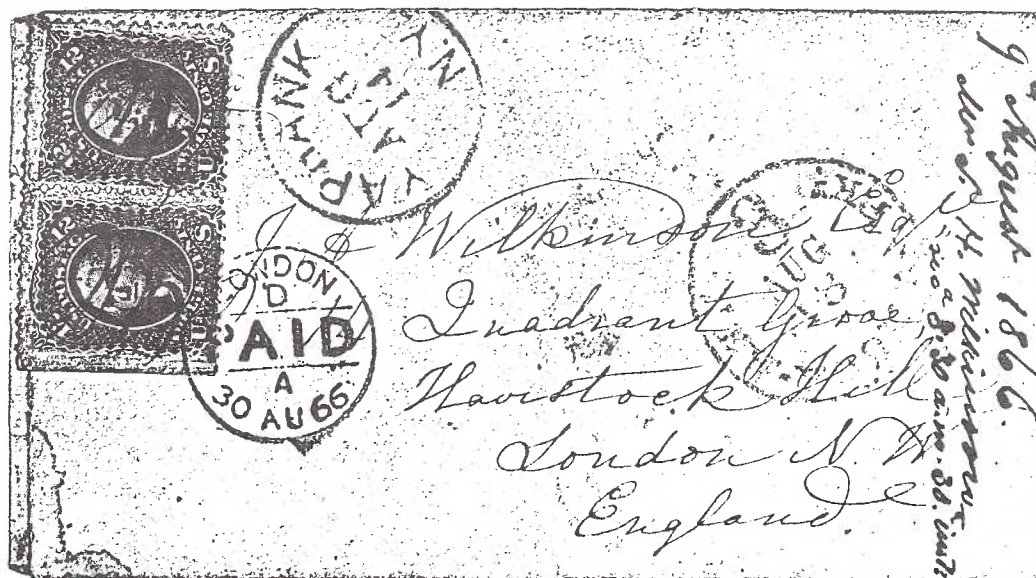 U.S. POSTAGE
12
12
U.S. POSTAGE
12
12
YAPHANK
AUG
14
N.Y.
LONDON
D
PAID
A
30 AU 66
AUG
J Wilkinson Esqr
Quadrant Grove,
Haverstock Hill
London N. W.
England.
9 August 1866.
H. Wilkinson
8.30 a.m. 30. inst.